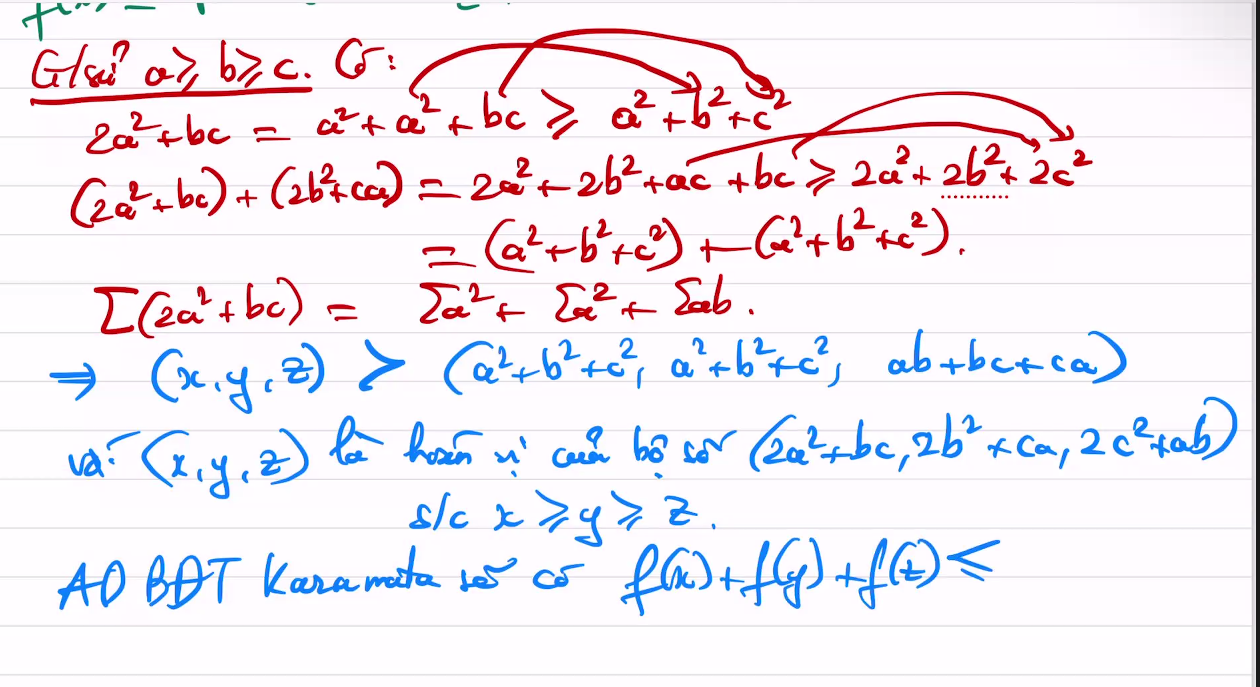 G/sử a ≥ b ≥ c. Có:
2a² + bc = a² + a² + bc ≥ a² + b² + c²
(2a² + bc) + (2b² + ca) = 2a² + 2b² + ac + bc ≥ 2a² + 2b² + 2c²
= (a² + b² + c²) + (a² + b² + c²).
Σ(2a² + bc) = Σa² + Σa² + Σab.
⇒ (x, y, z) > (a² + b² + c², a² + b² + c², ab + bc + ca)
và: (x, y, z) là hoán vị của bộ số (2a² + bc, 2b² + ca, 2c² + ab)
s/c x ≥ y ≥ z.
AD BĐT Karamata sẽ có f(x) + f(y) + f(z) ≤